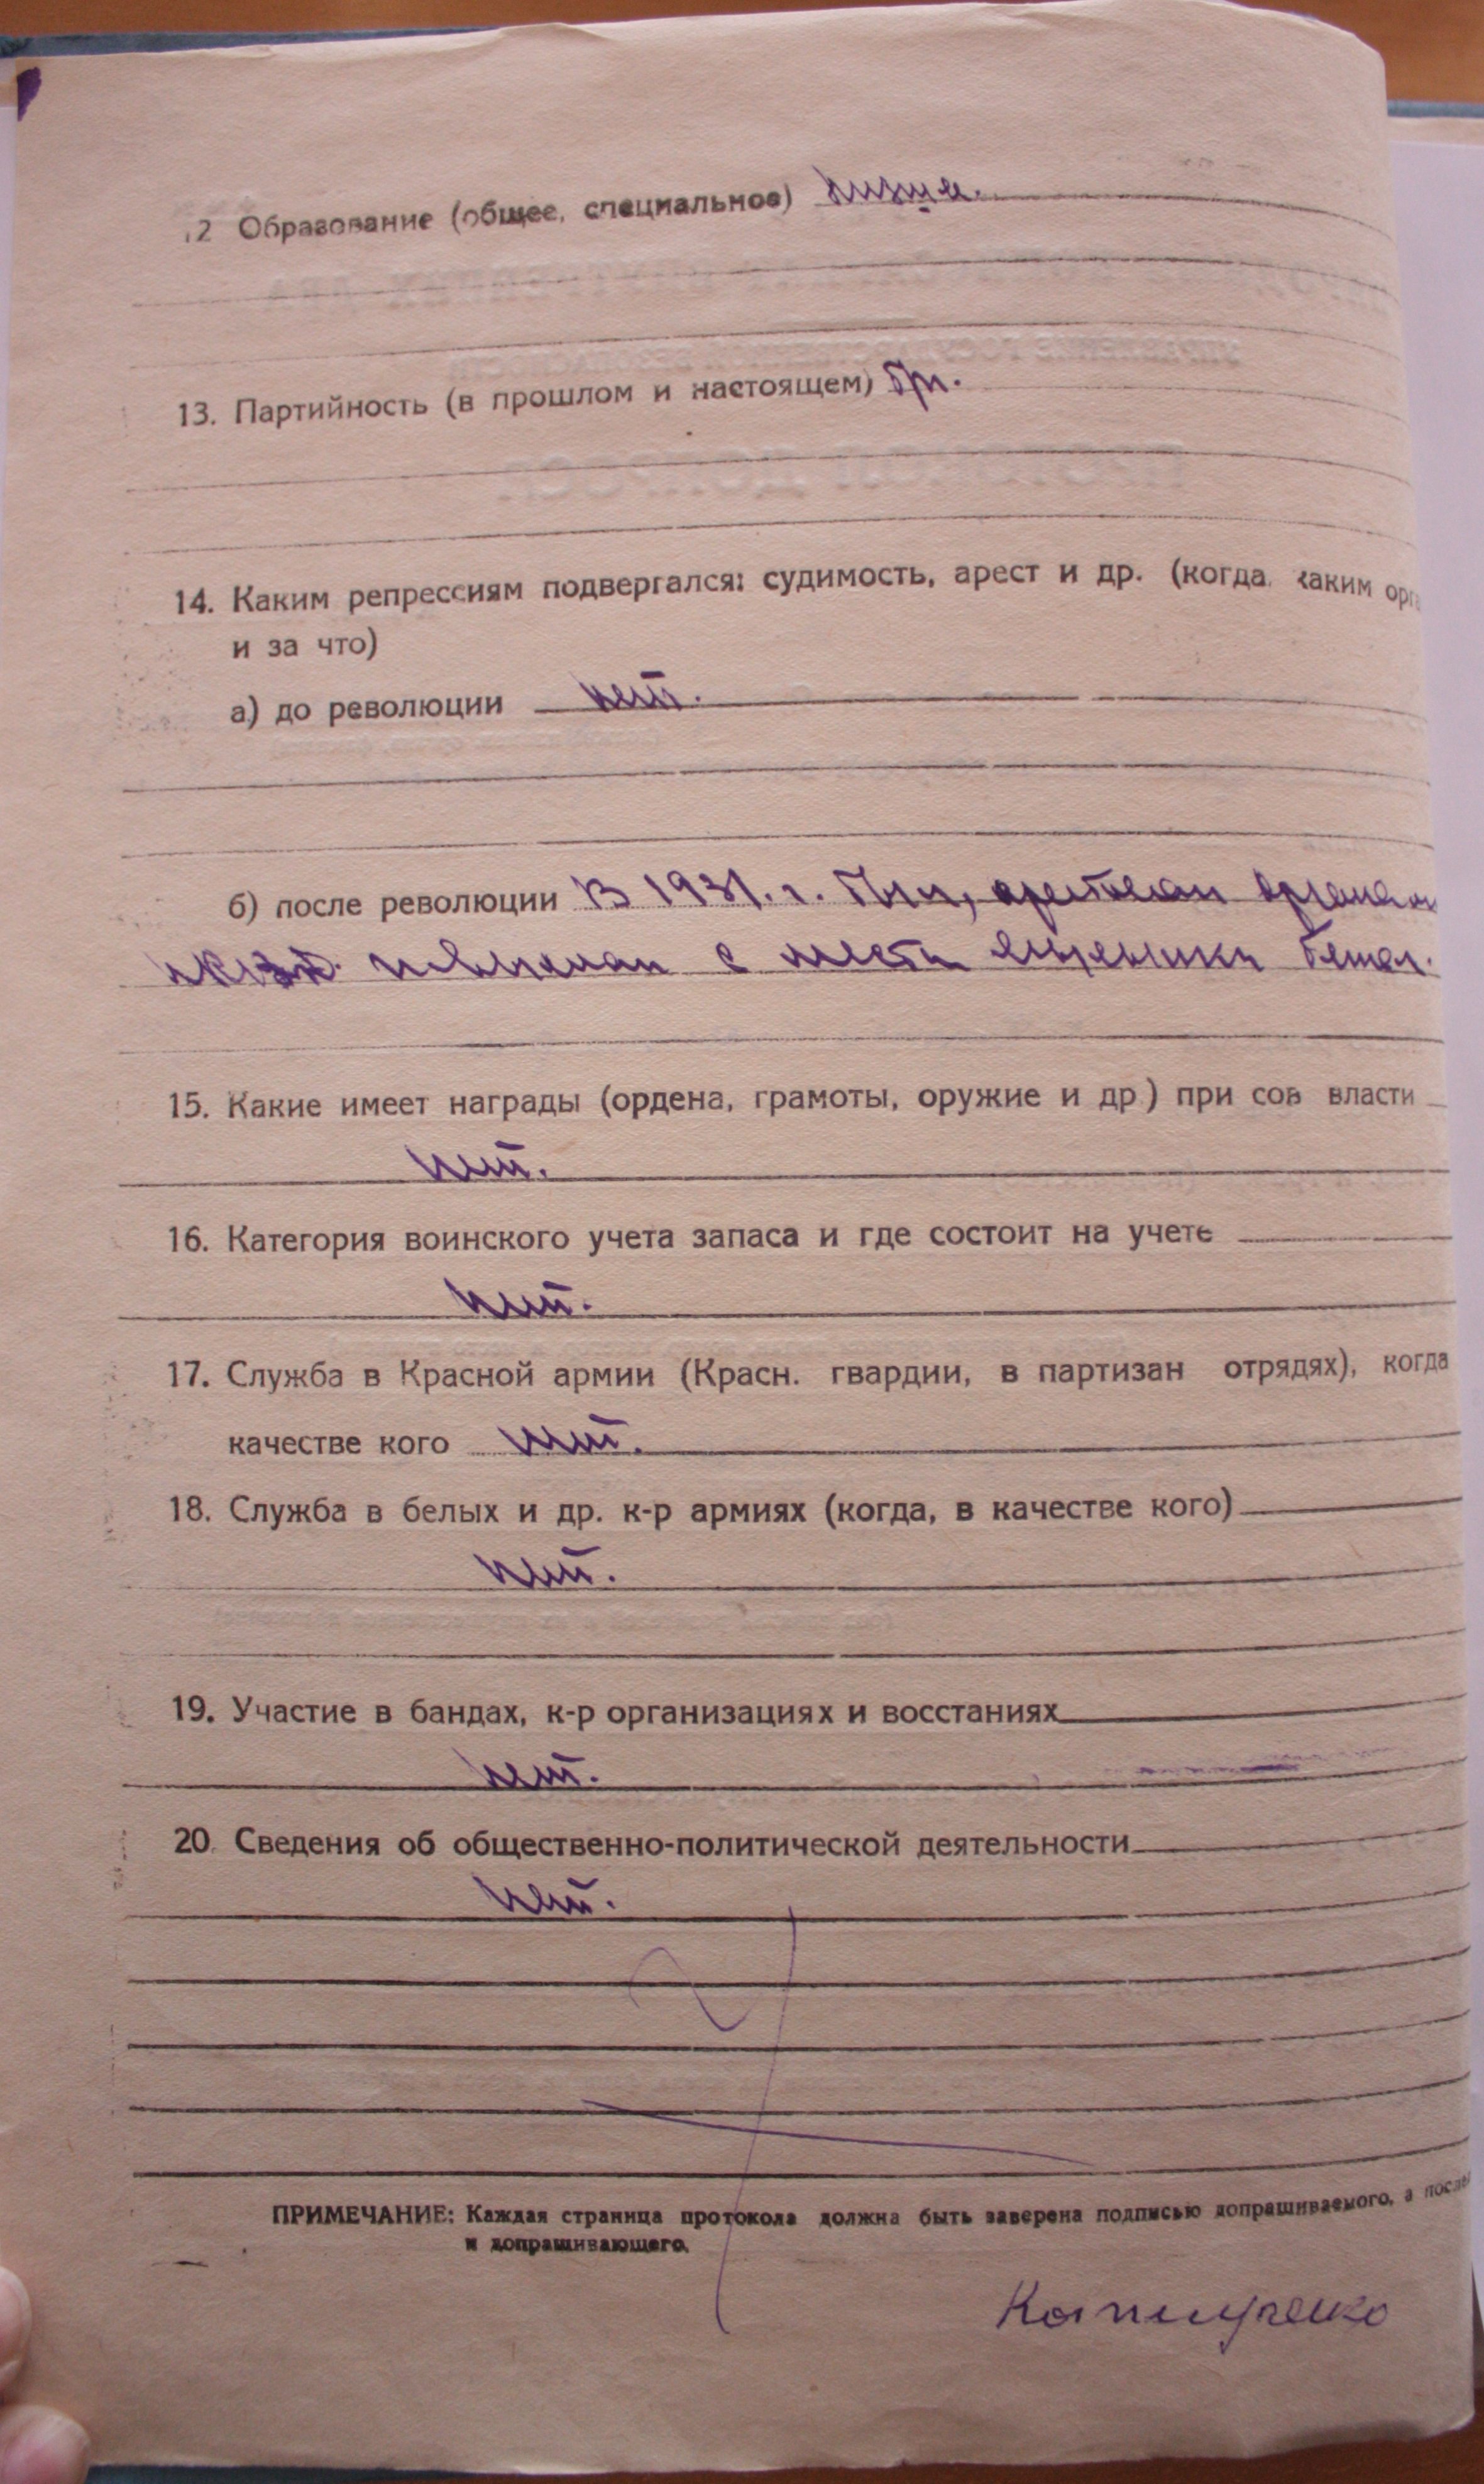 12 Образование (общее, специальное) низшее.
13. Партийность (в прошлом и настоящем) бп.
14. Каким репрессиям подвергался: судимость, арест и др. (когда, каким орга
и за что)
а) до революции нет.
б) после революции В 1931. г. был, арестован органами
НКВД. с места высылки бежал.
15. Какие имеет награды (ордена, грамоты, оружие и др) при сов власти
нет.
16. Категория воинского учета запаса и где состоит на учете
нет.
17. Служба в Красной армии (Красн. гвардии, в партизан отрядях), когда
качестве кого нет.
18. Служба в белых и др. к-р армиях (когда, в качестве кого)
нет.
19. Участие в бандах, к-р организациях и восстаниях
нет.
20. Сведения об общественно-политической деятельности
нет.
ПРИМЕЧАНИЕ: Каждая страница протокола должна быть заверена подписью допрашиваемого, а после
и допрашивающего.